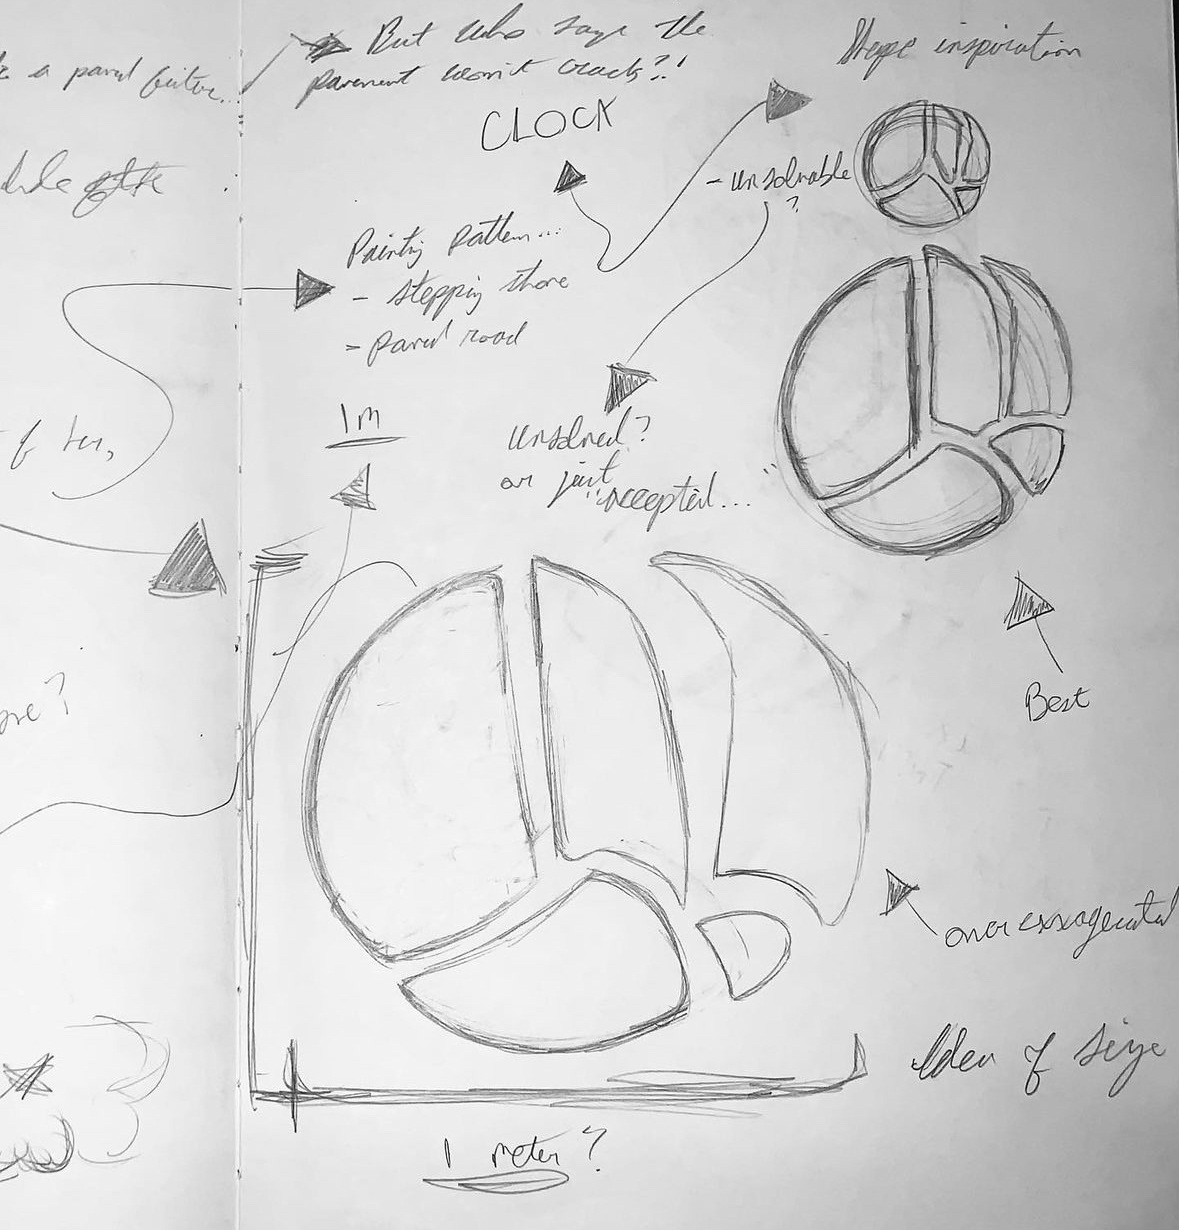 a paved future...
But who says the
pavement won't crack?!
Shape inspiration
CLOCK
- unsolvable
?
of the
Painting Pattern...
- stepping stone
- paved road
1m
Unsolved?
or just
"accepted...
"
of
?
Best
over exxagerated
Idea of size
1 meter?